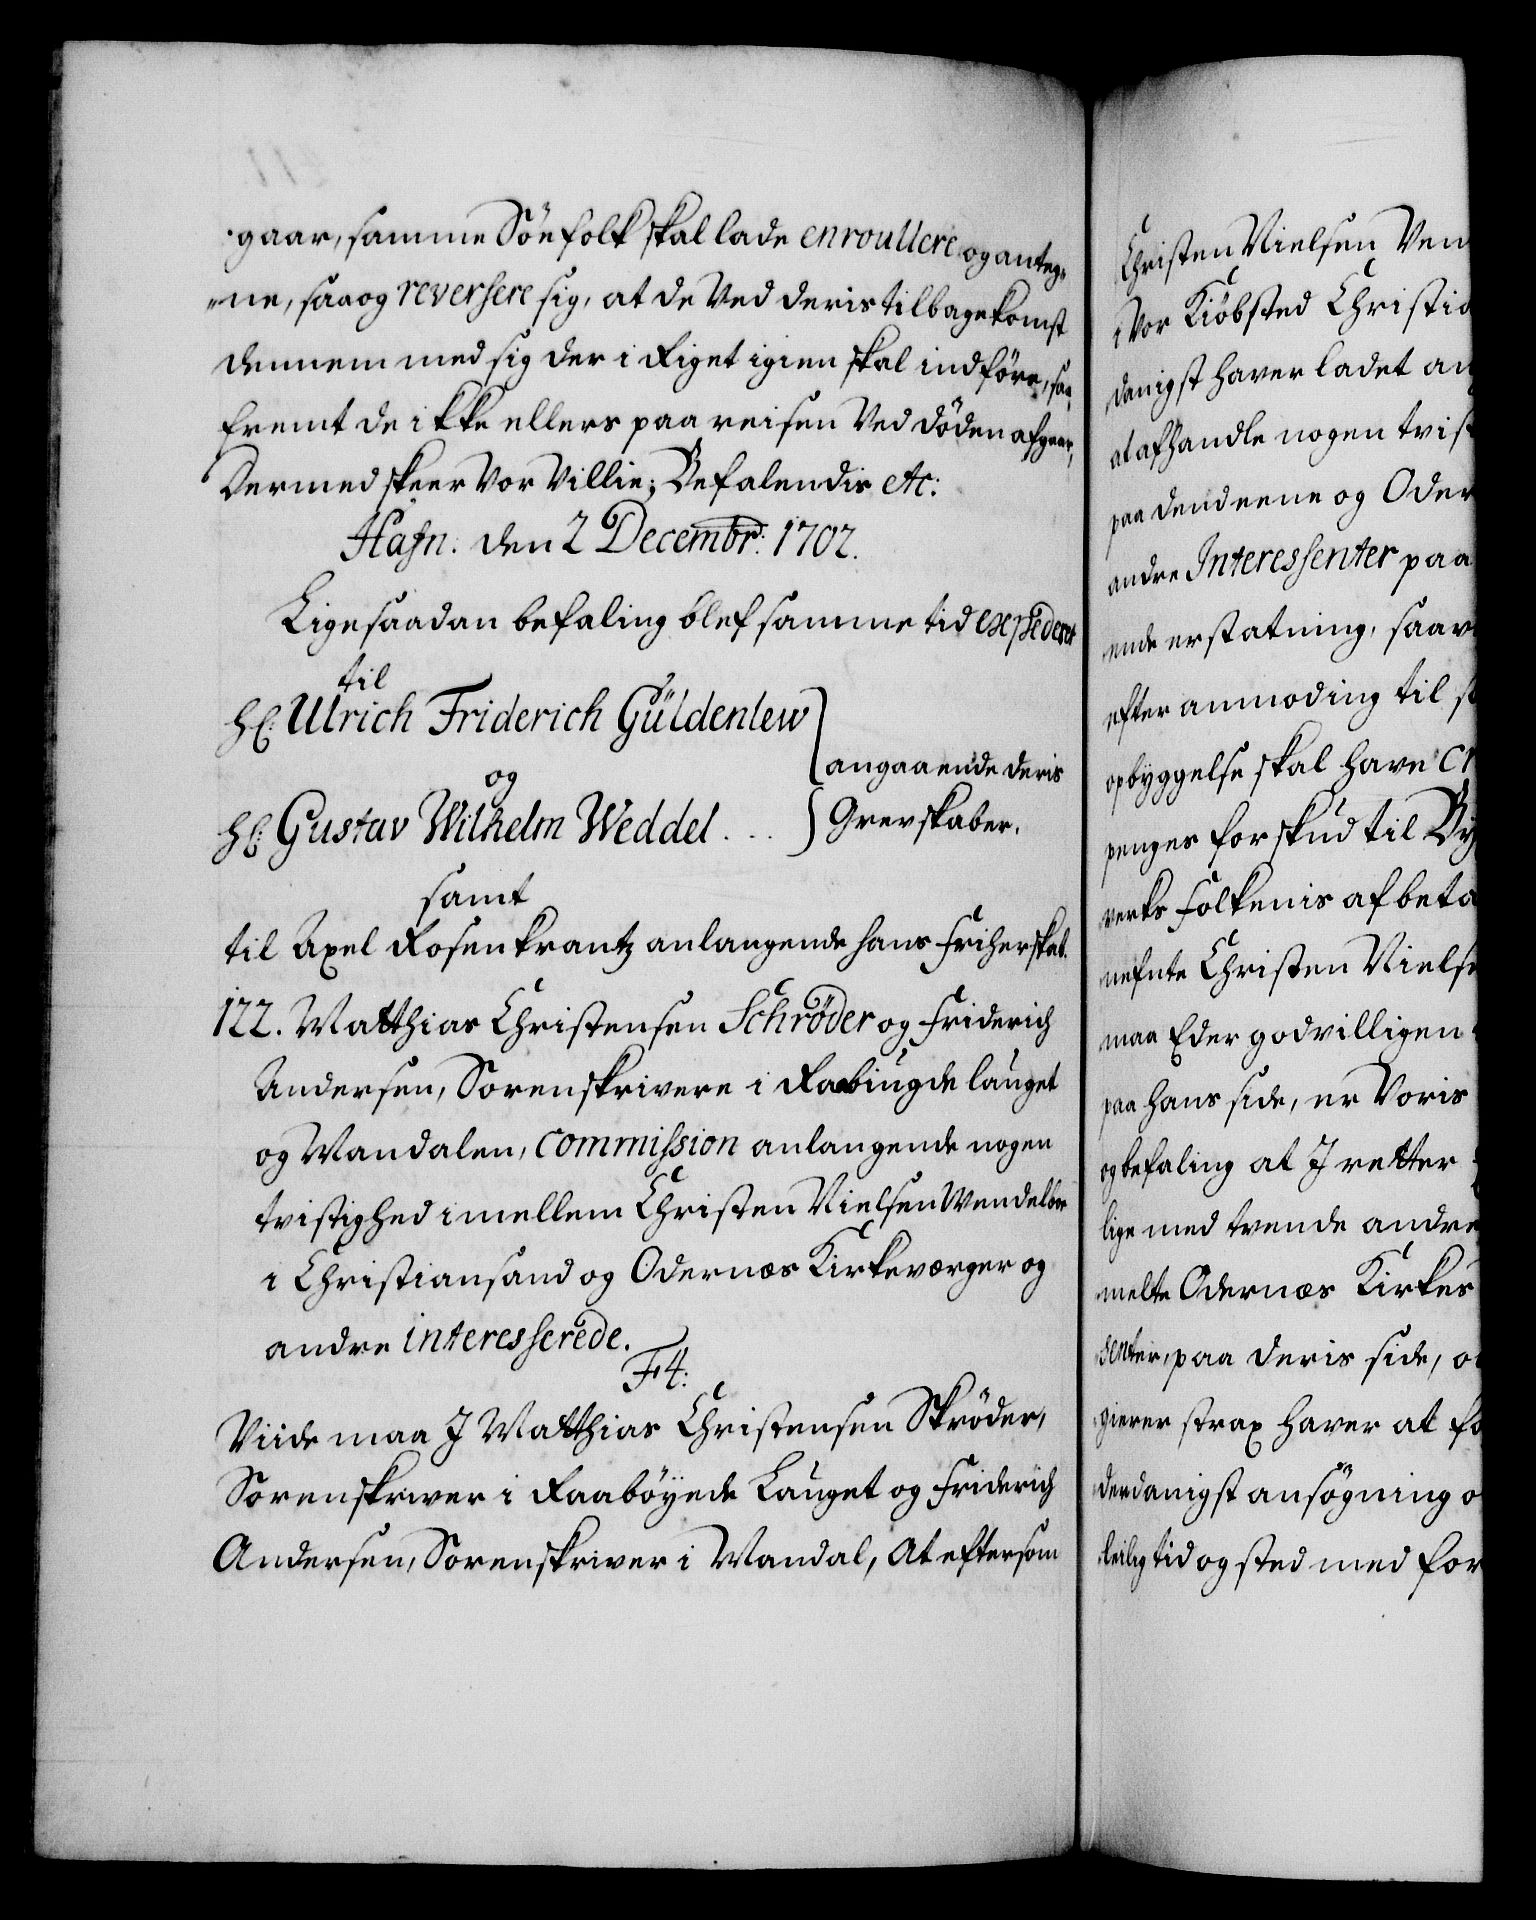 gaar, samme Söefolk skal lade enroullere og anteg-
-ne, saa og reversere sig, at de Ved deris tilbagekomst
dennem med sig der i Riget igien skal indföre, saa
fremt de ikke ellers paa reisen Ved döden afgaar,
Dermed skeer Vor Villie; Befalendis etc:
Hafn. den 2 Decembr: 1702.
Ligesaadan befaling blef samme tid expederet
til
Hl: Ulrich Friderich Güldenlew
angaaende deris
og
Hl: Gustav Wilhelm Weddel . . . Grevskaber.
samt
til Axel Rosenkrantz anlangende hans Friherskab.
122. Matthias Christensen Schröder og Friderich
Andersen, Sorenskrivere i Rabiugdelauget
og Mandalen, commission anlangende nogen
tvistighed imellem Christen Nielsen Wendelboe
i Christiansand og Odernæs Kirkeværger og
andre interesserede.
F4:
Viide maa J Matthias Christensen Skröder,
Sorenskriver i Raaböyede Lauget og Friderich
Andersen, Sorenskriver i Mandal, At eftersom
Christen Nielsen Ven
i Vor Kiöbsted Christia
danigst haver ladet an
at afhandle nogen tvist
paa dend eene og Oder
andre Interessenter paa
ende erstatning, saav
efter anmoding til s
opbyggelse skal have cr
penges forskud til By
verks Folkenis afbeta
nefnte Christen Nielse
maa Eder godvilligen
paa hans side, er Voris
og befaling at J retter
lige med tvende andre
melte Odernæs Kirkes
senter, paa deris side, o
gierer strax haver at fo
derdanigst ansögning o
leilig tid og sted med for